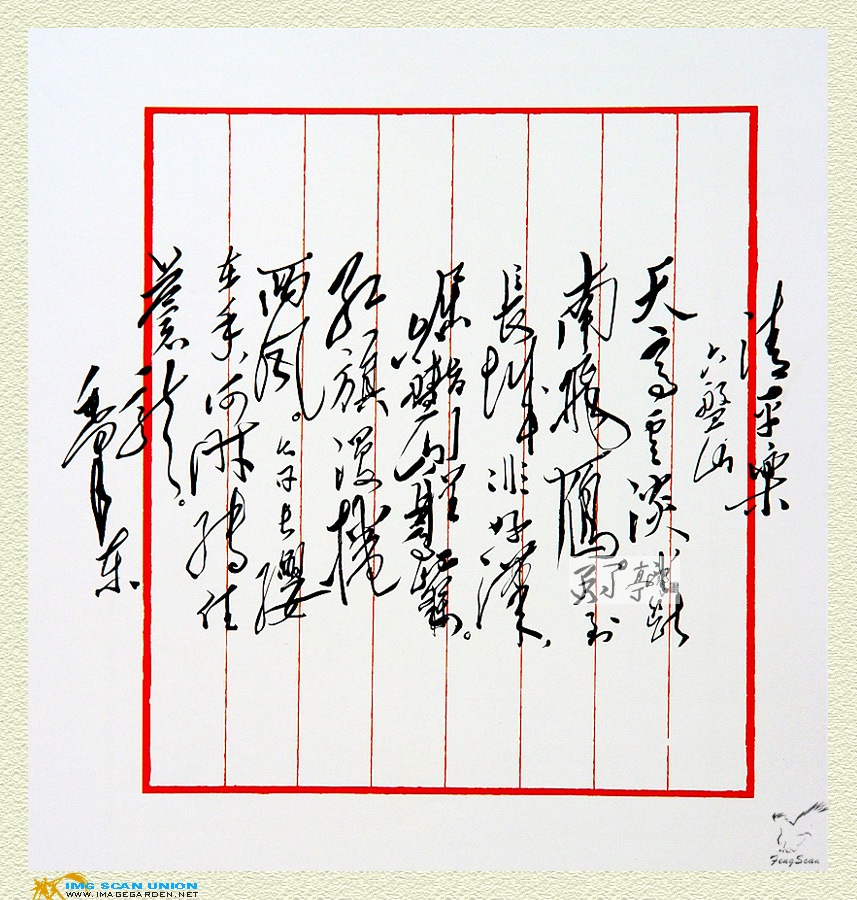 清平樂
六盤山
天高云淡望断
南飛雁不到
長城非好漢
屈指行程二萬。
六盤山上高峰
红旗漫捲
西風。今日长纓
在手何時縛住
蒼龍。
毛澤东
FengScan
IMG SCAN UNION
WWW.IMAGEGARDEN.NET